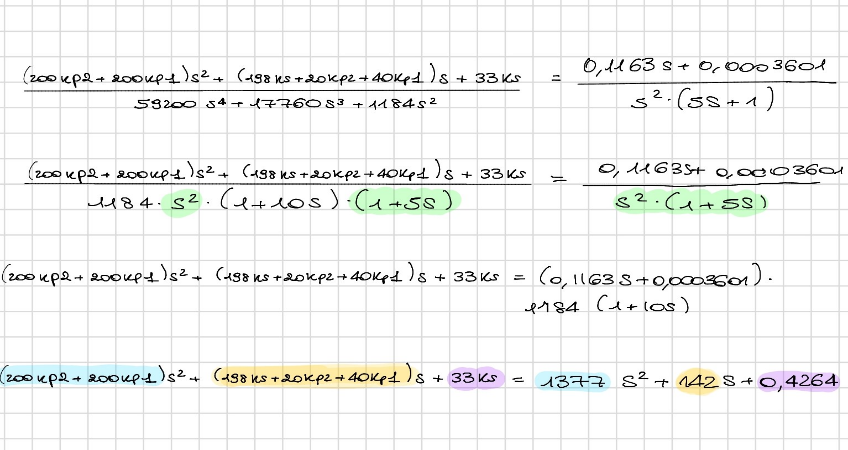 (200Kp2 + 200Kp1)s² + (198Ks + 20Kp2 + 40Kp1)s + 33Ks = 0,1163s + 0,0003601
59200 s⁴ + 17760s³ + 1184s² s²·(5s + 1)
(200Kp2 + 200Kp1)s² + (198Ks + 20Kp2 + 40Kp1)s + 33Ks = 0,1163s + 0,0003601
1184 · s² · (1 + 10s) · (1 + 5s) s² · (1 + 5s)
(200Kp2 + 200Kp1)s² + (198Ks + 20Kp2 + 40Kp1)s + 33Ks = (0,1163s + 0,0003601) ·
1184 (1 + 10s)
(200Kp2 + 200Kp1)s² + (198Ks + 20Kp2 + 40Kp1)s + 33Ks = 1377 s² + 142s + 0,4264